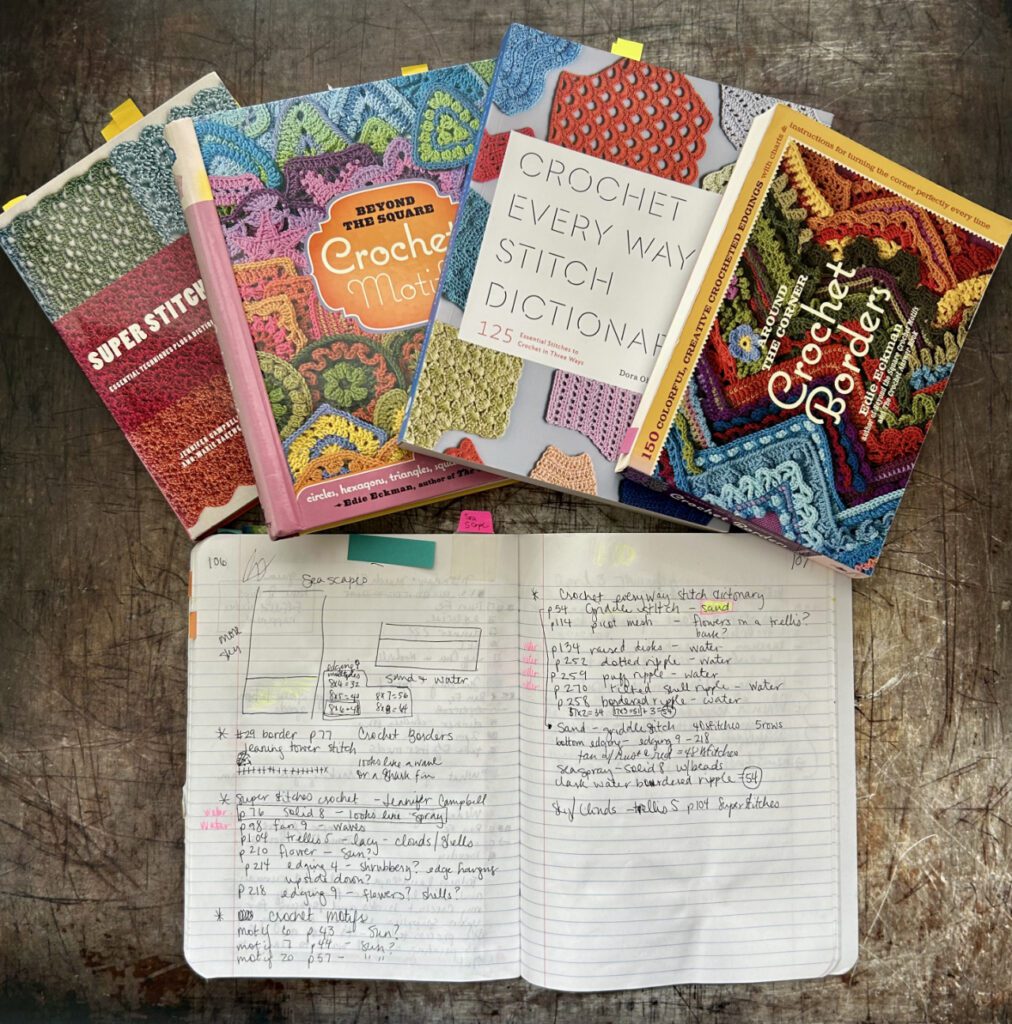 SUPER STITCH
ESSENTIAL TECHNIQUES PLUS A
JENNIFER CAMPBELL
BEYOND
THE SQUARE
Crochet
Moti
circles, hexagons, triangles, squa
Edie Eckman, author of The
CROCHET
EVERY WAY
STITCH
DICTIONAR
125 Essential Stitches to
Crochet in Three Ways
Dora
instructions for turning the corner perfectly every time
150 COLORFUL, CREATIVE CROCHETED EDGINGS with charts &
AROUND
THE CORNER
Crochet
Borders
Edie Eckman
Sea
Scape
106
Seascapes
more
sky
edging 9
multiples
8x4=32
8x5=40
8x6=48
8x7=56
8x8=64
sand & water
* #29 border p77 Crochet Borders
leaning tower stitch
looks like a wave
or a shark fin
* Super stitches crochet - Jennifer Campbell
water p76 solid 8 - looks like spray
water p98 fan 9 - waves
p104 trellis 5 - lacy - clouds/shells
p210 flower - sun?
p214 edging 4 - shrubbery? edge hanging
upside down?
p218 edging 9 - flowers? shells?
* crochet motifs
motif 6 p43 - sun?
motif 7 p44 - sun?
motif 20 p57 - " "
107
* Crochet everyway stitch dictionary
p54 Griddle stitch - sand
p114 picot mesh - flowers in a trellis?
p134 raised disks - water
p252 dotted ripple - water
p259 puff ripple - water
p270 tilted shell ripple - water
p258 bordered ripple - water
• Sand - griddle stitch 40 stitches 5 rows
bottom edging - edging 9 - 218
= 48 stitches
seaspray - solid 8 w/beads
dark water bordered ripple 54
Sky/Clouds - trellis 5 p104 Superstitches